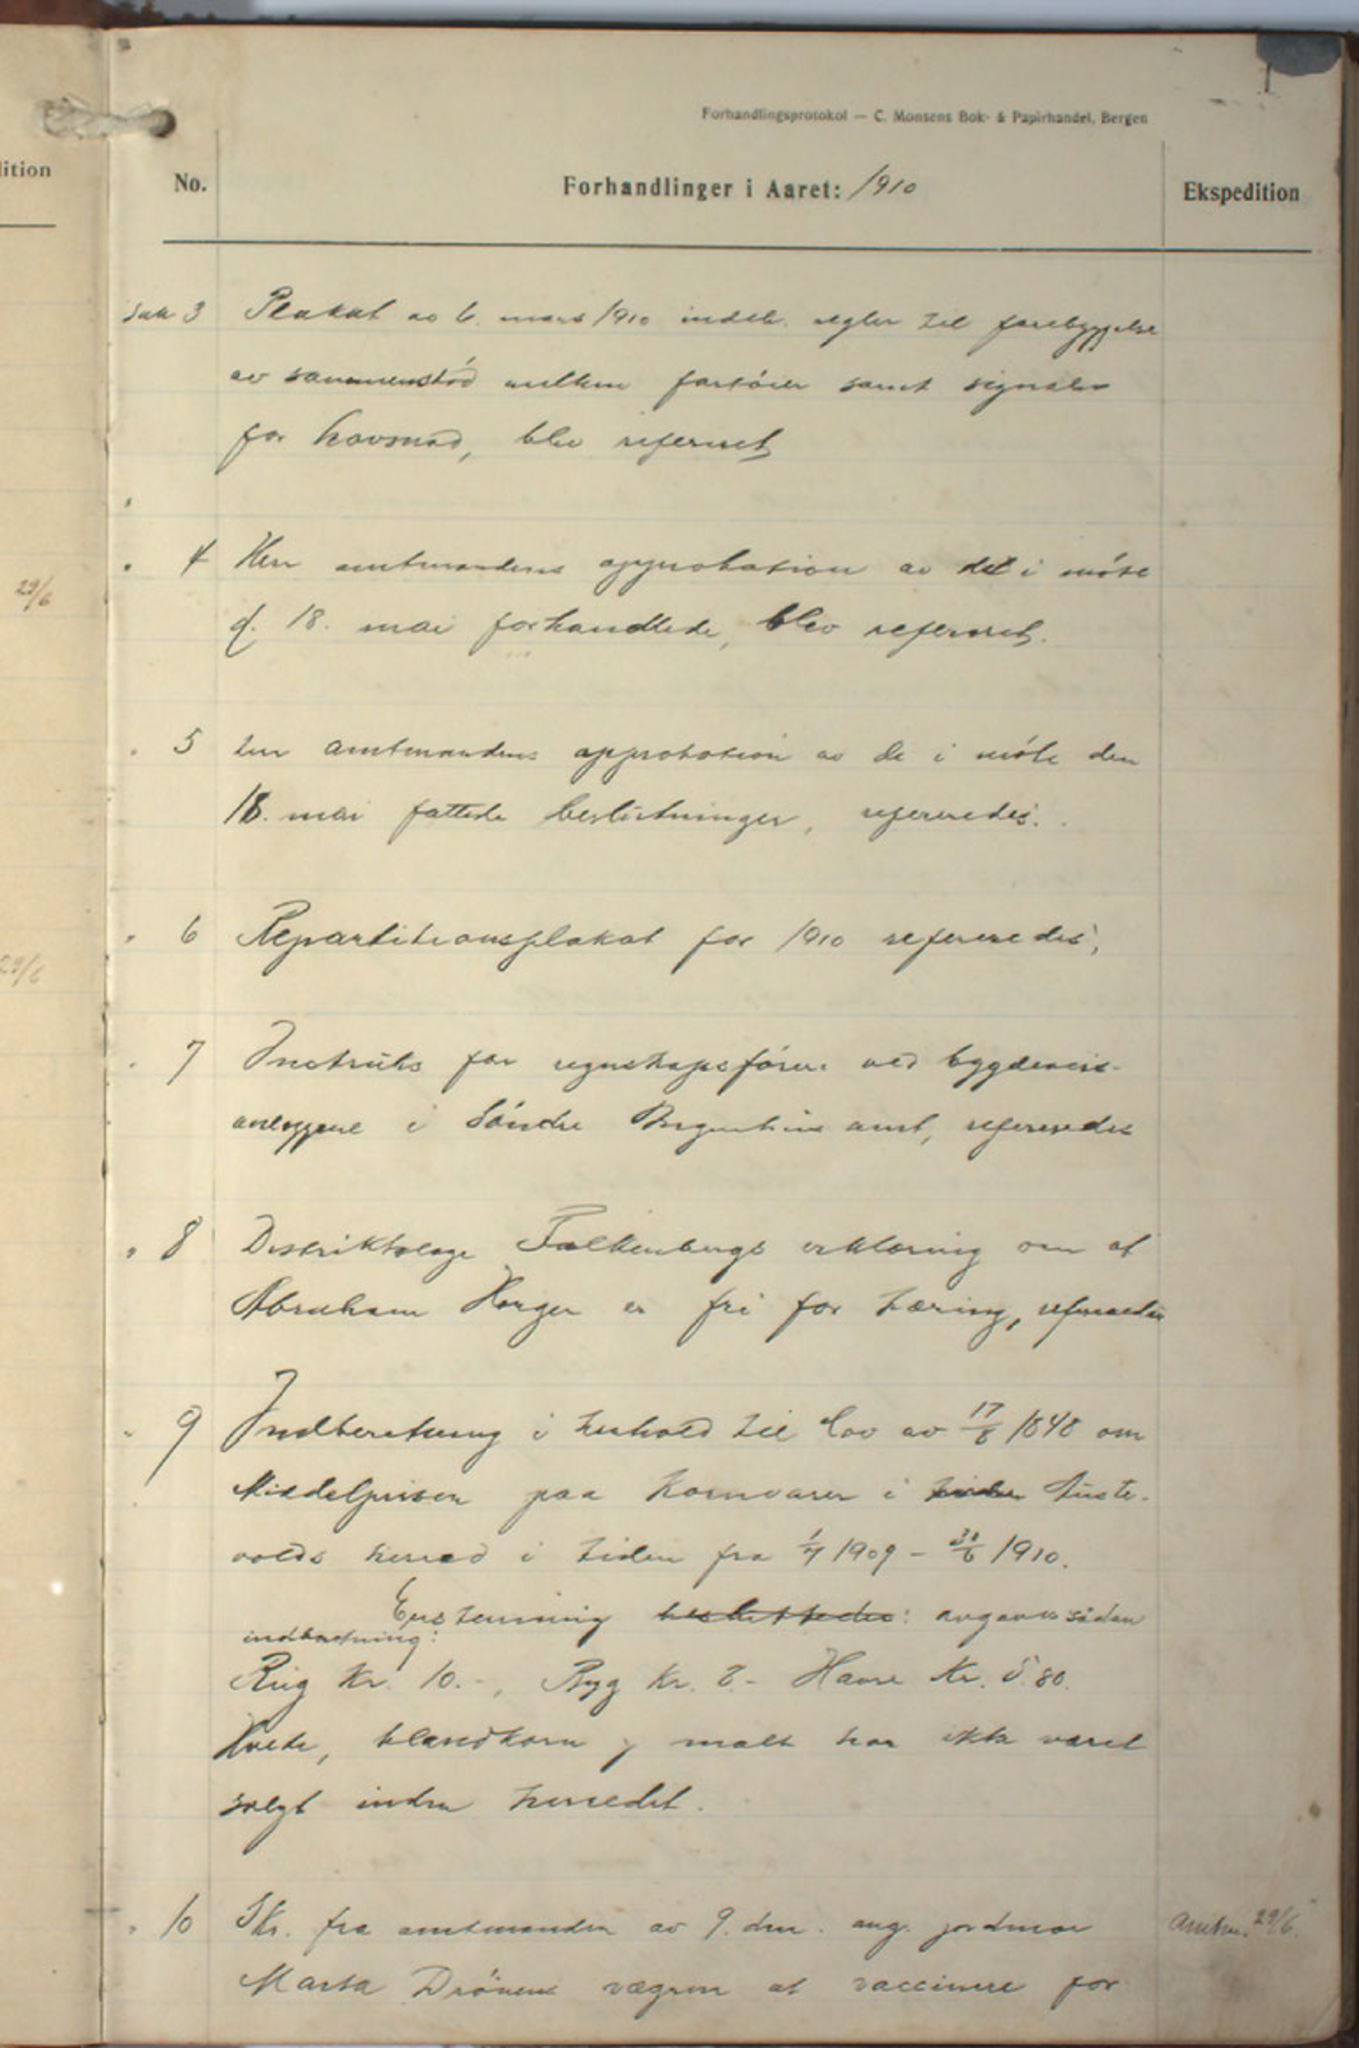 Forhandlingsprotokol — C. Monsens Bok- & Papirhandel, Bergen
ition
No.
Forhandlinger i Aaret: 1910
Ekspedition
Sak 3 Plakat av 6. mars 1910 indeh. regler til forebyggelse
av sammenstöd mellem fartöier samt signaler
for havsnöd, blev referert
" 4 Herr amtmandens approbation av det i möte
d. 18. mai forhandlede, blev referert.
29/6
" 5 Herr amtmandens approbation av de i möte den
18. mai fattede beslutninger, referedes.
" 6 Repartitionsplakat for 1910 refereredes,
29/6
" 7 Instruks for regnskapsförer ved bygdeveis-
anlæggene i Söndre Bergenhus amt, refereredes
" 8 Distriktslæge Falkenbergs erklæring om at
Abraham Horgen er fri for tæring, refereredes
" 9 Indberetning i henhold til lov av 17/8 1848 om
Middelprisen paa Kornvarer i Auste-
volds herred i tiden fra 1/7 1909 - 30/6 1910.
Enstemmig besluttedes: avgaves sådan
indberetning:
Rug Kr. 10.-, Byg Kr. 8.- Havre Kr. 5.80.
Hvete, blandkorn og malt har ikke været
solgt inden herredet.
" 10 Skr. fra amtmanden av 9. dm. ang. jordmor
Amtm. 29/6.
Marta Drönens vægren at vaccinere for